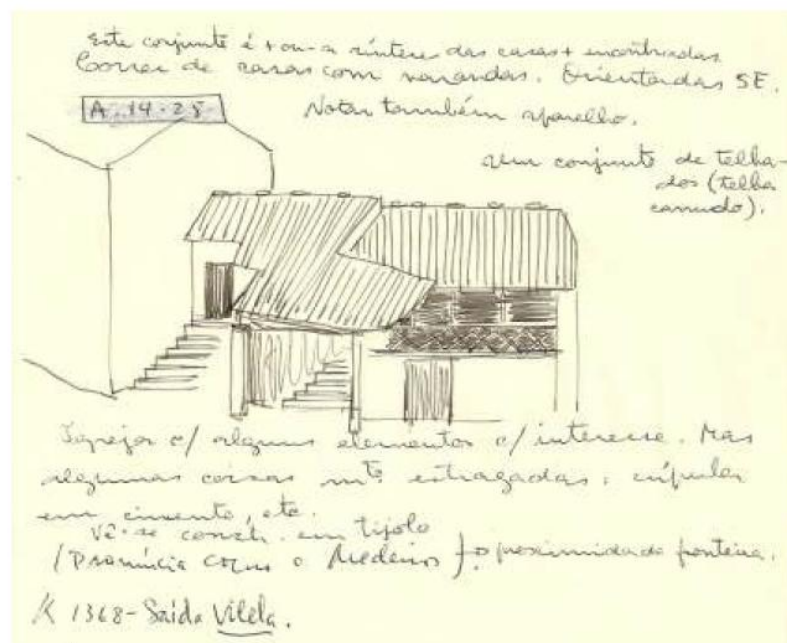 Este conjunto é + ou - a síntese das casas + encontradas.
Correr de casas com varandas. Orientadas SE.
A.14-25
Notar também aparelho.
um conjunto de telha-
dos (telha
canudo).
Igreja c/ alguns elementos c/ interesse. Mas
algumas coisas mto estragadas: cúpula
em cimento, etc.
Vê-se constr. em tijolo
(Pronúncia como o Medeiros) proximidade fronteira.
K 1368 - Saída Vilela.